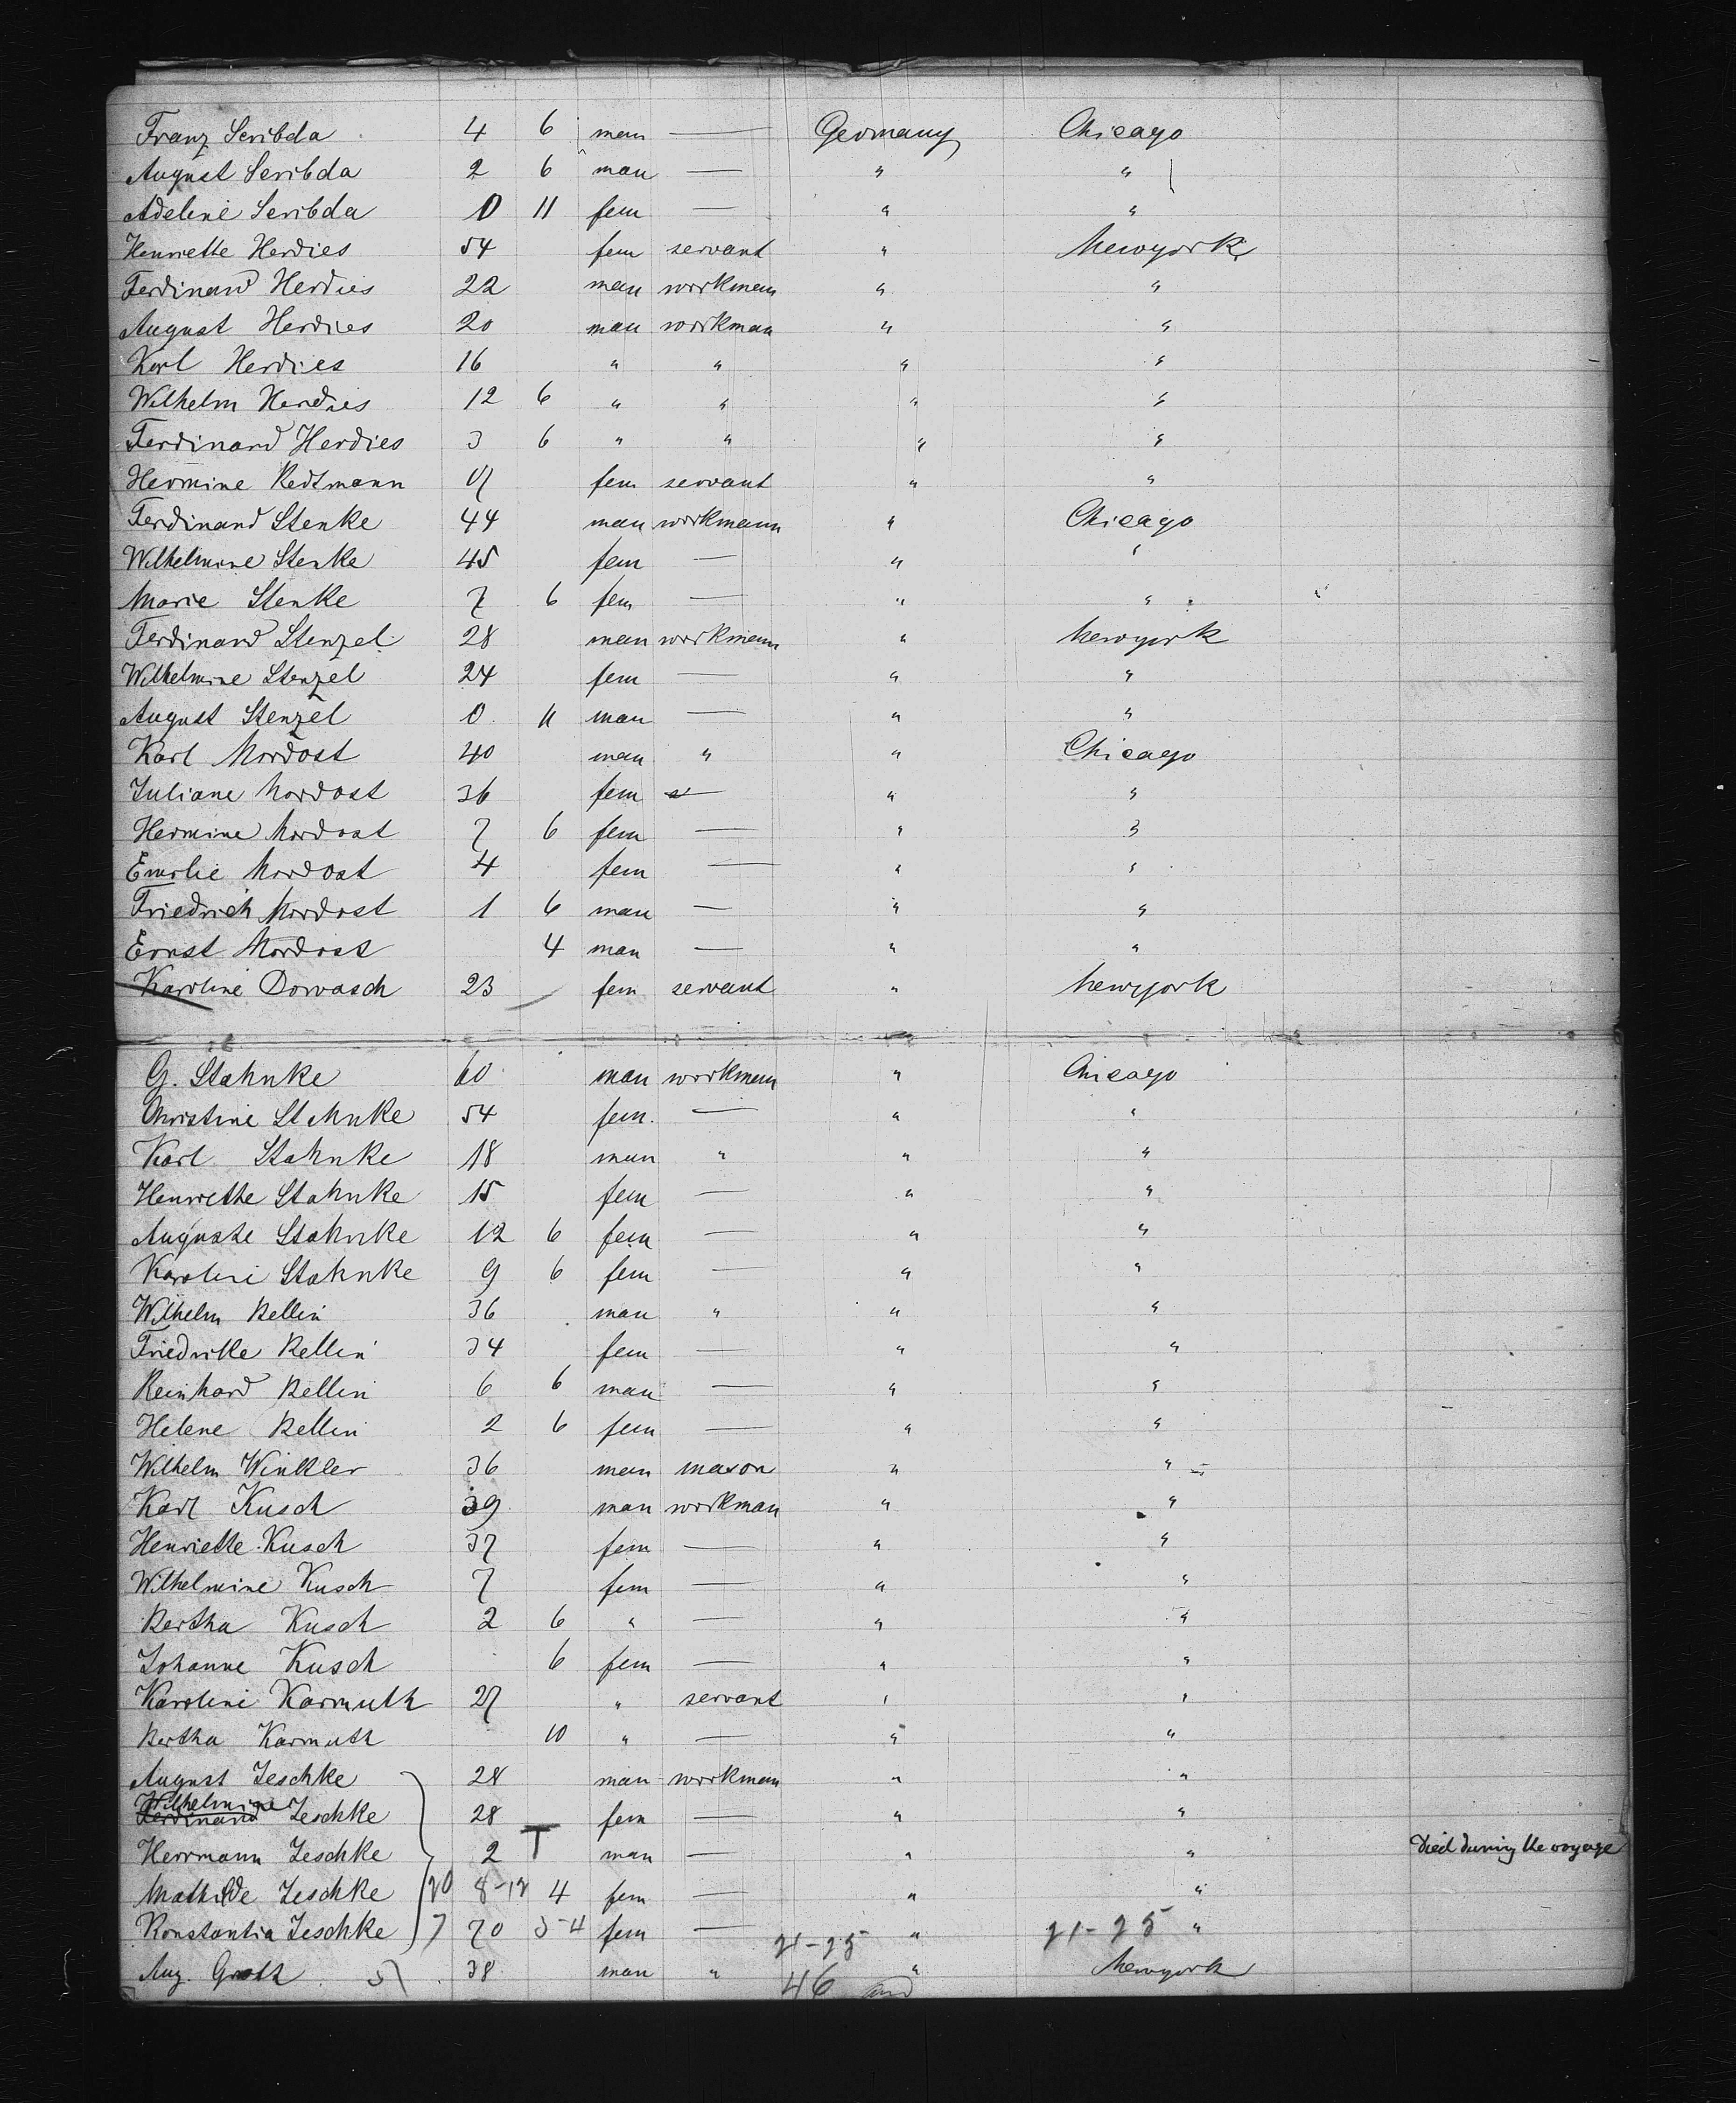 Franz Scribda 4 6 man — Germany Chicago
August Scribda 2 6 man — " "
Adeline Scribda 0 11 fem — " "
Henriette Herdies 54 fem servant " Newyork
Ferdinand Herdies 22 man workman " "
August Herdies 20 man workman " "
Karl Herdies 16 " " " "
Wilhelm Herdies 12 6 " " " "
Ferdinand Herdies 3 6 " " " "
Hermine Redtmann fem servant " "
Ferdinand Stenke 44 man workmann " Chicago
Wilhelmine Stenke 45 fem — " "
Marie Stenke 7 6 fem — " "
Ferdinand Stenzel 28 man workmann " Newyork
Wilhelmine Stenzel 24 fem — " "
August Stenzel 0 11 man — " "
Karl Nordost 40 man " " Chicago
Juliane Nordost 36 fem — " "
Hermine Nordost 7 6 fem — " "
Emilie Nordost 4 fem — " "
Friedrich Nordost 1 6 man — " "
Ernst Nordost 4 man — " "
Karoline Dorvasch 23 fem servant " Newyork
G. Stahnke 60 man workman " Chicago
Christine Stahnke 54 fem. — " "
Karl Stahnke 18 man " " "
Henriethe Stahnke 15 fem — " "
Auguste Stahnke 12 6 fem — " "
Karoline Stahnke 9 6 fem — " "
Wilhelm Bellin 36 man " " "
Friedrike Bellin 34 fem — " "
Reinhard Bellin 6 6 man — " "
Helene Bellin 2 6 fem — " "
Wilhelm Winkler 36 man mason " "
Karl Kusch 39 man workman " "
Henriette Kusch 37 fem — " "
Wilhelmine Kusch 7 fem — " "
Bertha Kusch 2 6 " — " "
Johanne Kusch 6 fem — " "
Karoline Karmuth 27 " servant " "
Bertha Karmuth 10 " — " "
August Zeschke 28 man workman " "
Wilhelmine
Ferdinand Zeschke 28 fem — " "
Herrmann Zeschke 2 T man — " " Died during the voyage
Mathilde Zeschke 20 8-12 4 fem — " "
Konstantia Zeschke 7 70 3-4 fem — " 21-25 "
21-25
Aug. Groth 5 38 man " " Newyork
46